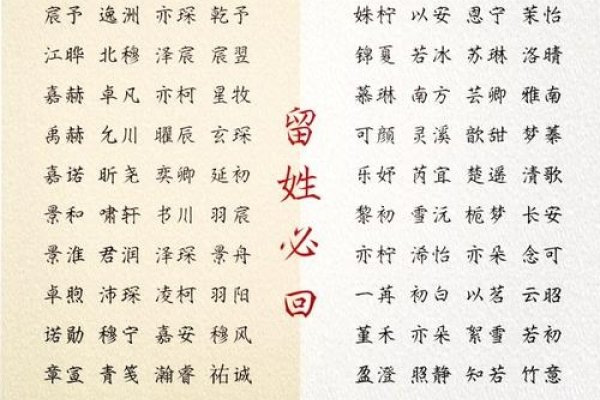 宸予 逸洲 亦琛 乾予
江晔 北穆 泽宸 宸翌
嘉赫 卓凡 亦柯 星牧
禹赫 乞川 曜辰 玄琛
嘉诺 昕尧 奕卿 延初
景和 啸轩 书川 羽宸
景淮 君润 泽琛 景舟
卓煦 沛琛 凌柯 羽阳
诺勋 穆宁 嘉安 穆风
章宣 青笺 瀚睿 祐诚
留姓必回
姝柠 以安 恩宁 茉怡
锦夏 若冰 苏琳 洛晴
慕琳 南方 芸卿 雅南
可颜 灵溪 歆甜 梦蓁
乐妤 芮宜 楚遥 清歌
黎初 雪沅 栀梦 长安
亦柠 浠怡 亦朵 念可
一苒 初白 以茗 云昭
堇禾 亦朵 絮雪 若初
盈澄 照静 知若 竹意